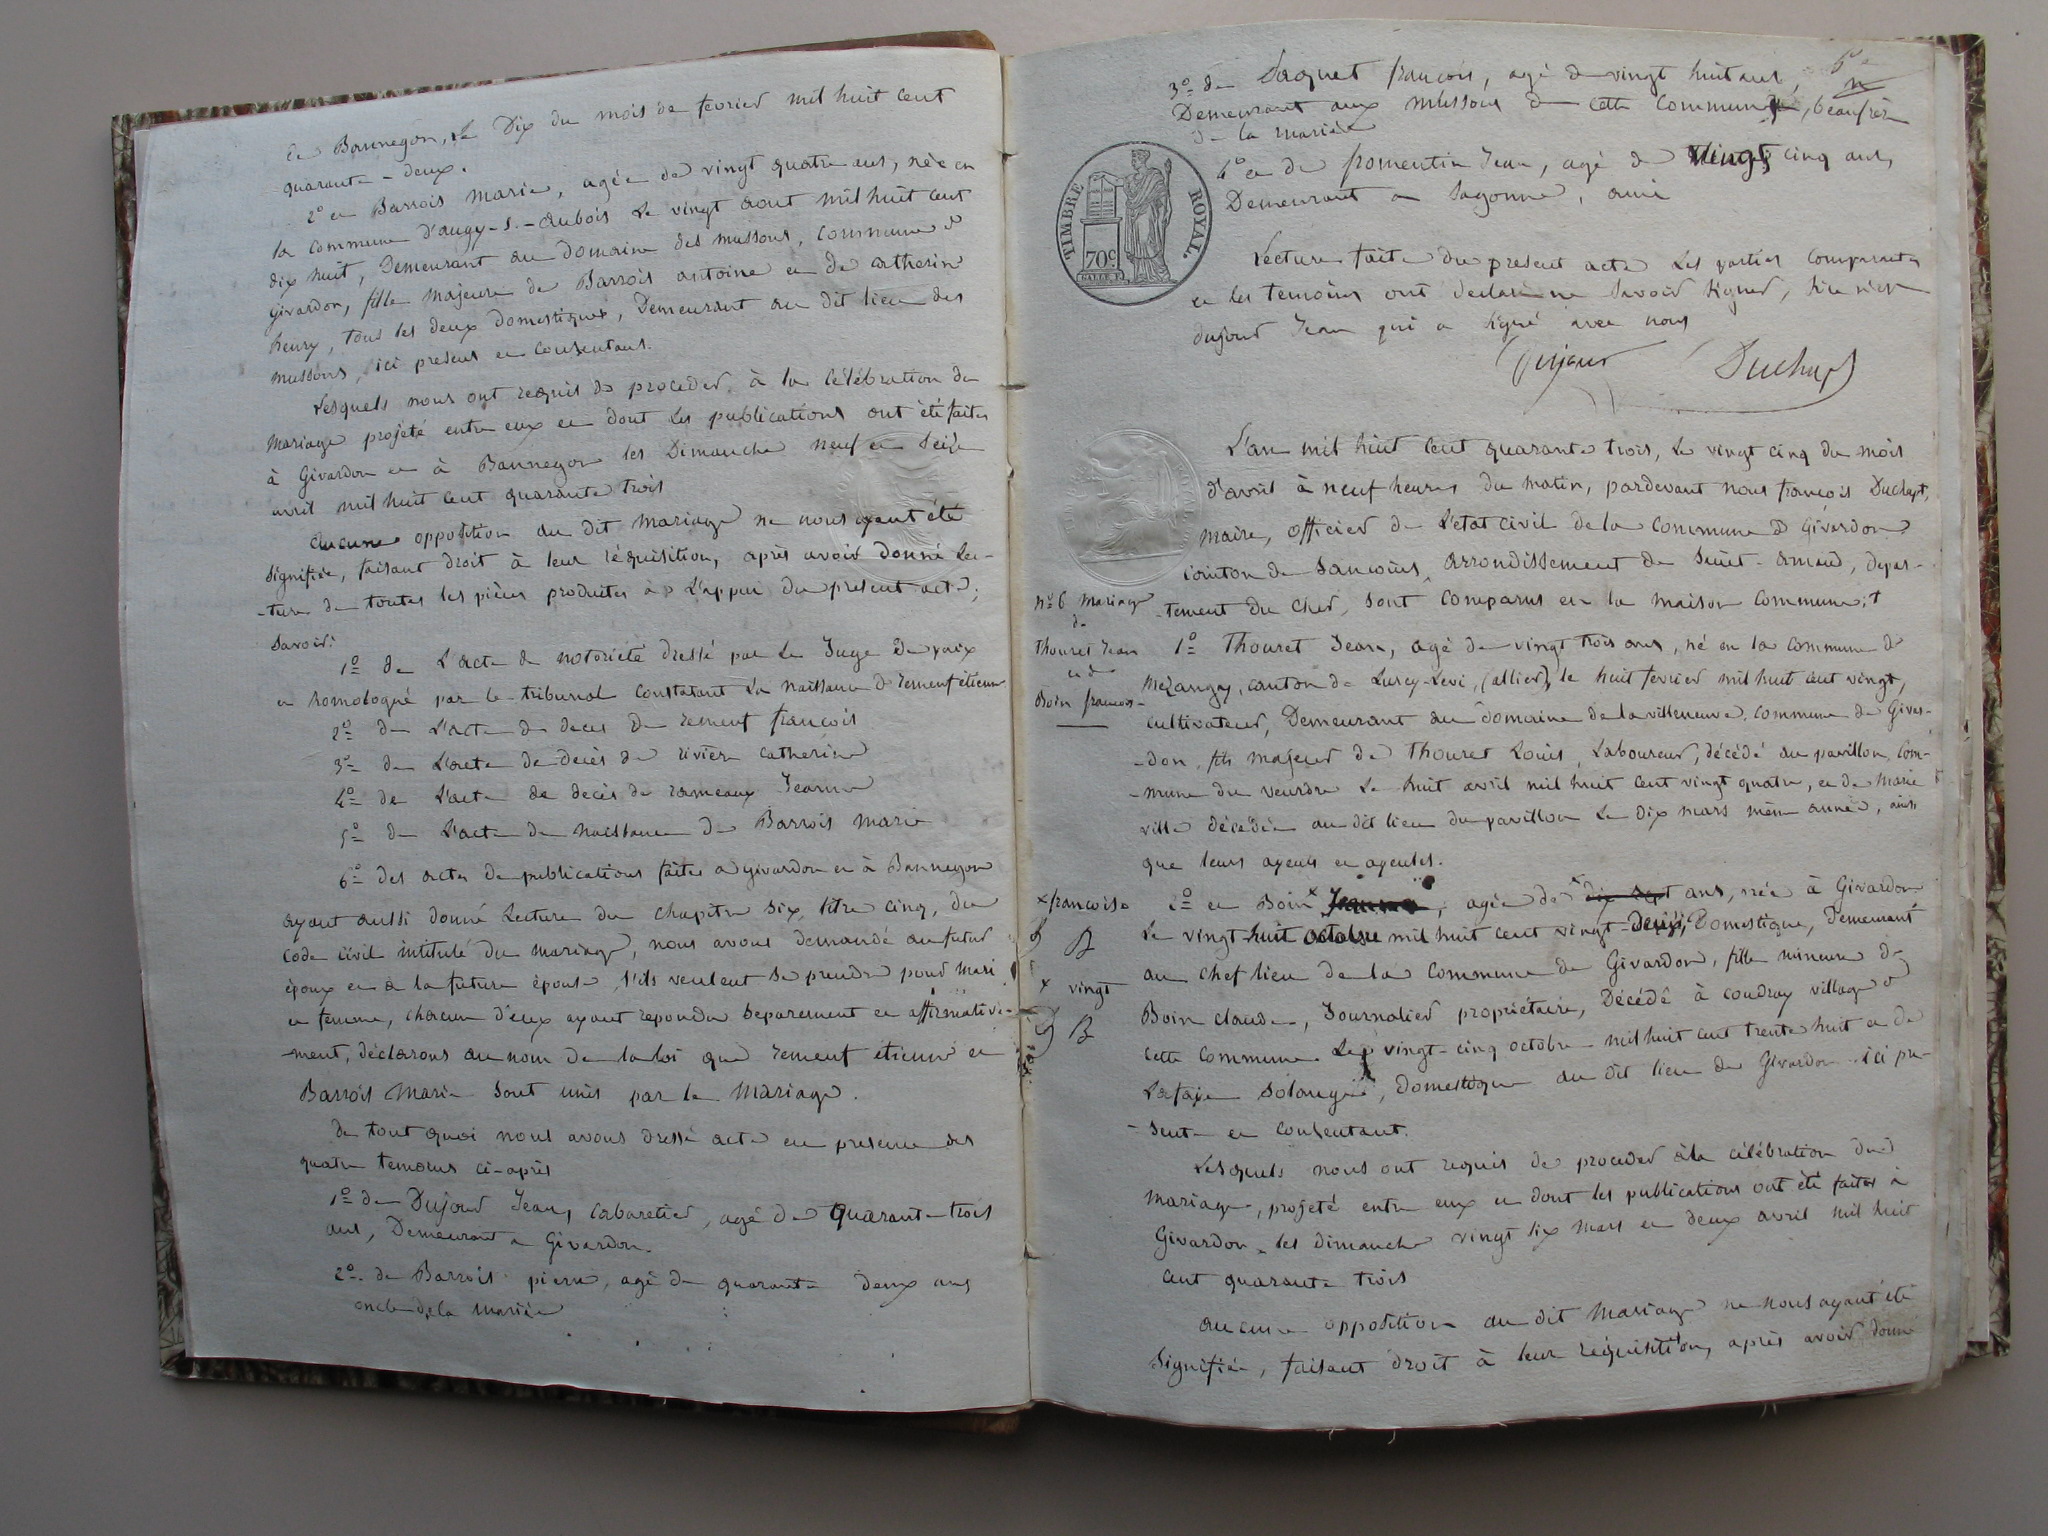 de Bannegon, le Dix du mois de fevrier mil huit cent
quarante-deux.
2º et Barrois Marie, agée de vingt quatre ans, née en
la commune d'augy-s.-aubois le vingt aout mil huit cent
dix huit, Demeurant au domaine des mussons, commune de
Givardon, fille majeure de Barrois antoine et de catherine
henry, tous les deux domestiques, Demeurant au dit lieu des
mussons, ici presens et consentans.
Lesquels nous ont requis de proceder à la célébration du
mariage projeté entre eux et dont les publications ont été faites
à Givardon et à Bannegon les Dimanche neuf et seize
avril mil huit cent quarante trois
aucune opposition au dit mariage ne nous ayant été
signifiée, faisant droit à leur réquisition, après avoir donné lec-
-ture de toutes les pièces produites à L'appui du present acte;
savoir:
1º de L'acte de notorieté dressé par le Juge de paix
et homologué par le tribunal constatant la naissance de remeuf étienne
2º de L'acte de deces de remeuf francois
3º de L'acte de decès de riviere catherine
4º de L'acte de decès de rameaux Jeanne
5º de L'acte de naissance de Barrois marie
6º des actes de publications faites a givardon et à Bannegon
ayant aussi donné Lecture du chapitre six, titre cinq, du
code civil intitulé du mariage, nous avons demandé au futur
époux et à la future épouse s'ils veulent se prendre pour mari
et femme, chacun d'eux ayant repondu separement et affirmative-
-ment, déclarons au nom de la loi que remeuf étienne et
Barrois Marie sont unis par le Mariage.
de tout quoi nous avons dressé acte en presence des
quatre temoins ci-après
1º de Dujour Jean, cabaretier, agé de quarante-trois
ans, Demeurant a Givardon.
2º de Barrois pierre, agé de quarante deux ans
oncle de la mariée
3º de Jaquet francois, agé de vingt huit ans,
Demeurant aux mussons de cette commune, beaufrère
de la mariée
4º et de fromentin Jean, agé de vingt cinq ans,
Demeurant a sagonne, ami
TIMBRE ROYAL.
70c
Lecture faite du present acte Les parties comparantes
et les temoins ont declaré ne savoir signer, si ce n'est
dujour Jean qui a signé avec nous
Dujour Duchapt
L'an mil huit cent quarante trois, le vingt cinq du mois
d'avril à neuf heures du matin, pardevant nous françois Duchapt,
maire, officier de L'etat civil de la commune de Givardon
canton de Sancoins, arrondissement de Saint-amand, depar-
-tement du cher, sont comparus en la maison commune;
nº6 mariage
de
Thouret Jean
et de
Boin francoise
1º Thouret Jean, agé de vingt trois ans, né en la commune de
Mezangy, canton de Lurcy-Levi, (allier), le huit fevrier mil huit cent vingt,
cultivateur, Demeurant au domaine de la villeneuve, commune de Givar-
-don, fils majeur de Thouret Louis, Laboureur, décédé au pavillon, com-
-mune du veurdre le huit avril mil huit cent vingt quatre, et de Marie
ville décédée au dit lieu du pavillon le dix mars même année, ainsi
que leurs ayeuls et ayeules.
2º et Boin x Jeanne, agée de x dix sept ans, née à Givardon
x francoise
D B
x vingt
D B
Le vingt huit octobre mil huit cent vingt-deux, Domestique, Demeurant
au chef lieu de la commune de Givardon, fille mineure de
Boin claude, Journalier propriétaire, Décédé à coudray village de
cette commune le vingt-cinq octobre mil huit cent trente huit et de
Lafaye solange, domestique au dit lieu de Givardon ici pre-
-sente et consentant.
Lesquels nous ont requis de proceder à la célébration du
mariage, projeté entre eux et dont les publications ont été faites à
Givardon, les dimanche vingt six mars et deux avril mil huit
cent quarante trois
aucune opposition au dit mariage ne nous ayant été
signifiée, faisant droit à leur réquisition, après avoir donné